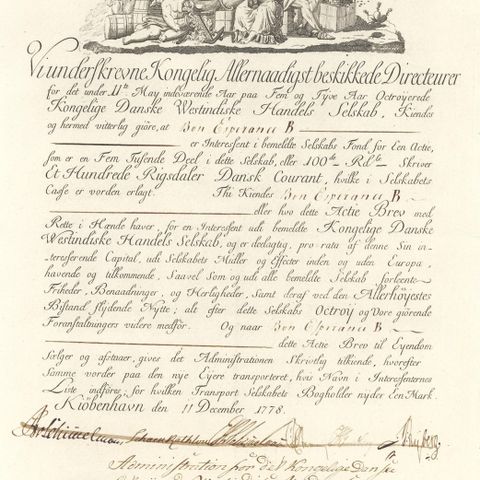 Vi underskrevne Kongelig Allernaadigst beskikkede Directeurer
for det under 11te May indeværende Aar paa Fem og Tyve Aar Octroÿerede
Kongelige Danske Westindiske Handels Selskab, Kiendes
og hermed vitterlig giöre, at Bon Esperance B
er Interessent i bemeldte Selskabs Fond for Een Actie,
som er en Fem Tusende Deel i dette Selskab, eller 100de Rdlr Skriver
Et Hundrede Rigsdaler Dansk Courant, hvilke i Selskabets
Casse er vorden erlagt. Thi Kiendes Bon Esperance B
eller hvo dette Actie Brev med
Rette i Hænde haver, for en Interessent udi bemeldte Kongelige Danske
Westindiske Handels Selskab, og er deelagtig, pro rata af denne Sin in-
teresserende Capital, udi Selskabets Midler og Effecter inden og uden Europa,
havende og tilkommende, Saavel Som og udi alle bemeldte Selskab forleente
Friheder, Benaadninger, og Herligheder, Samt deraf ved den Allerhöyestes
Bistand flÿdende Nytte; alt efter dette Selskabs Octroÿ og Vore giörende
Foranstaltninger videre medför. Og naar Bon Esperance B
dette Actie Brev til Eyendom
Sælger og afstaaer, gives det Administrationen Skrivtlig tilkiende, hvorefter
Samme vorder paa den nye Ejere transporteret, hvis Navn i Interessenternes
Liste indföres; for hvilken Transport Selskabets Bogholder nÿder Een Mark.
Kiöbenhavn den 11 December 1778.
Schimmelmann
Administration for det Kongelige Danske